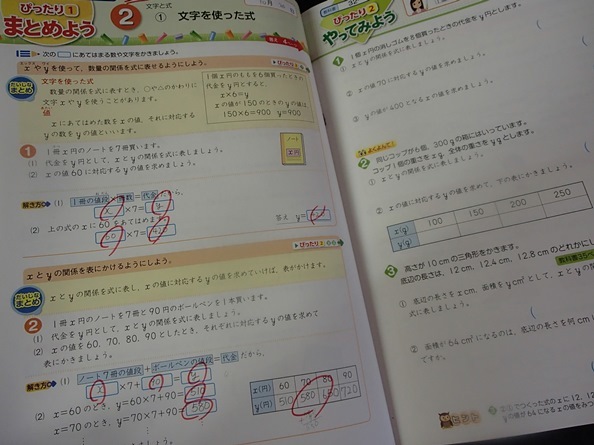 ぴったり1
まとめよう
2
文字と式
① 文字を使った式
次の□にあてはまる数や文字をかきましょう。
xやyを使って，数量の関係を式に表せるようにしよう。
だいじな
まとめ
文字を使った式
数量の関係を式に表すとき，○や△のかわりに
文字xやyを使うことがあります。
値
xにあてはめた数をxの値，それに対応する
yの数をyの値といいます。
1個x円のももを6個買ったときの
代金をy円とすると，
x×6=y
xの値が150のときのyの値は，
150×6=900 900
1
1冊x円のノートを7冊買います。
(1) 代金をy円として，xとyの関係を式に表しましょう。
(2) xの値60に対応するyの値を求めましょう。
ノート
x円
解き方
(1) 1冊の値段×冊数=代金だから，
x ×7= y
(2) 上の式のxに60をあてはめます。
60 ×7= 420
答え y=
xとyの関係を表にかけるようにしよう。
ぴったり2
だいじな
まとめ
xとyの関係を式に表し，xの値に対応するyの値を求めていけば，表がかけます。
2
1冊x円のノート7冊と90円のボールペンを1本買います。
(1) 代金をy円として，xとyの関係を式に表しましょう。
(2) xの値を60，70，80，90としたとき，それぞれに対応するyの値を求めて
表にかきましょう。
解き方
(1) ノート7冊の値段+ボールペンの値段=代金だから，
×7+
(2) x=60のとき，y=60×7+90= 510
x=70のとき，y=70×7+90= 580
x(円) 60 70 80 90
y(円) 510 580 650 720
ぴったり2
やってみよう
1
1個x円の消しゴムを8個買ったときの代金をy円とします。
① xとyの関係を式に表しましょう。
② xの値70に対応するyの値を求めましょう。
③ yの値が400となるxの値を求めましょう。
よくよんで
2
同じコップが6個，300gの箱にはいっています。
コップ1個の重さをxg，全体の重さをygとします。
① xとyの関係を式に表しましょう。
② xの値に対応するyの値を求めて，下の表にかきましょう。
x(g) 100 150 200 250
y(g)
3
高さが10cmの三角形をかきます。
底辺の長さは，12cm，12.4cm，12.8cmのどれかにし
① 底辺の長さをxcm，面積をycm²として，xとyの関
式に表しましょう。
② 面積が64cm²になるのは，底辺の長さを何cmに
ですか。
ヒント